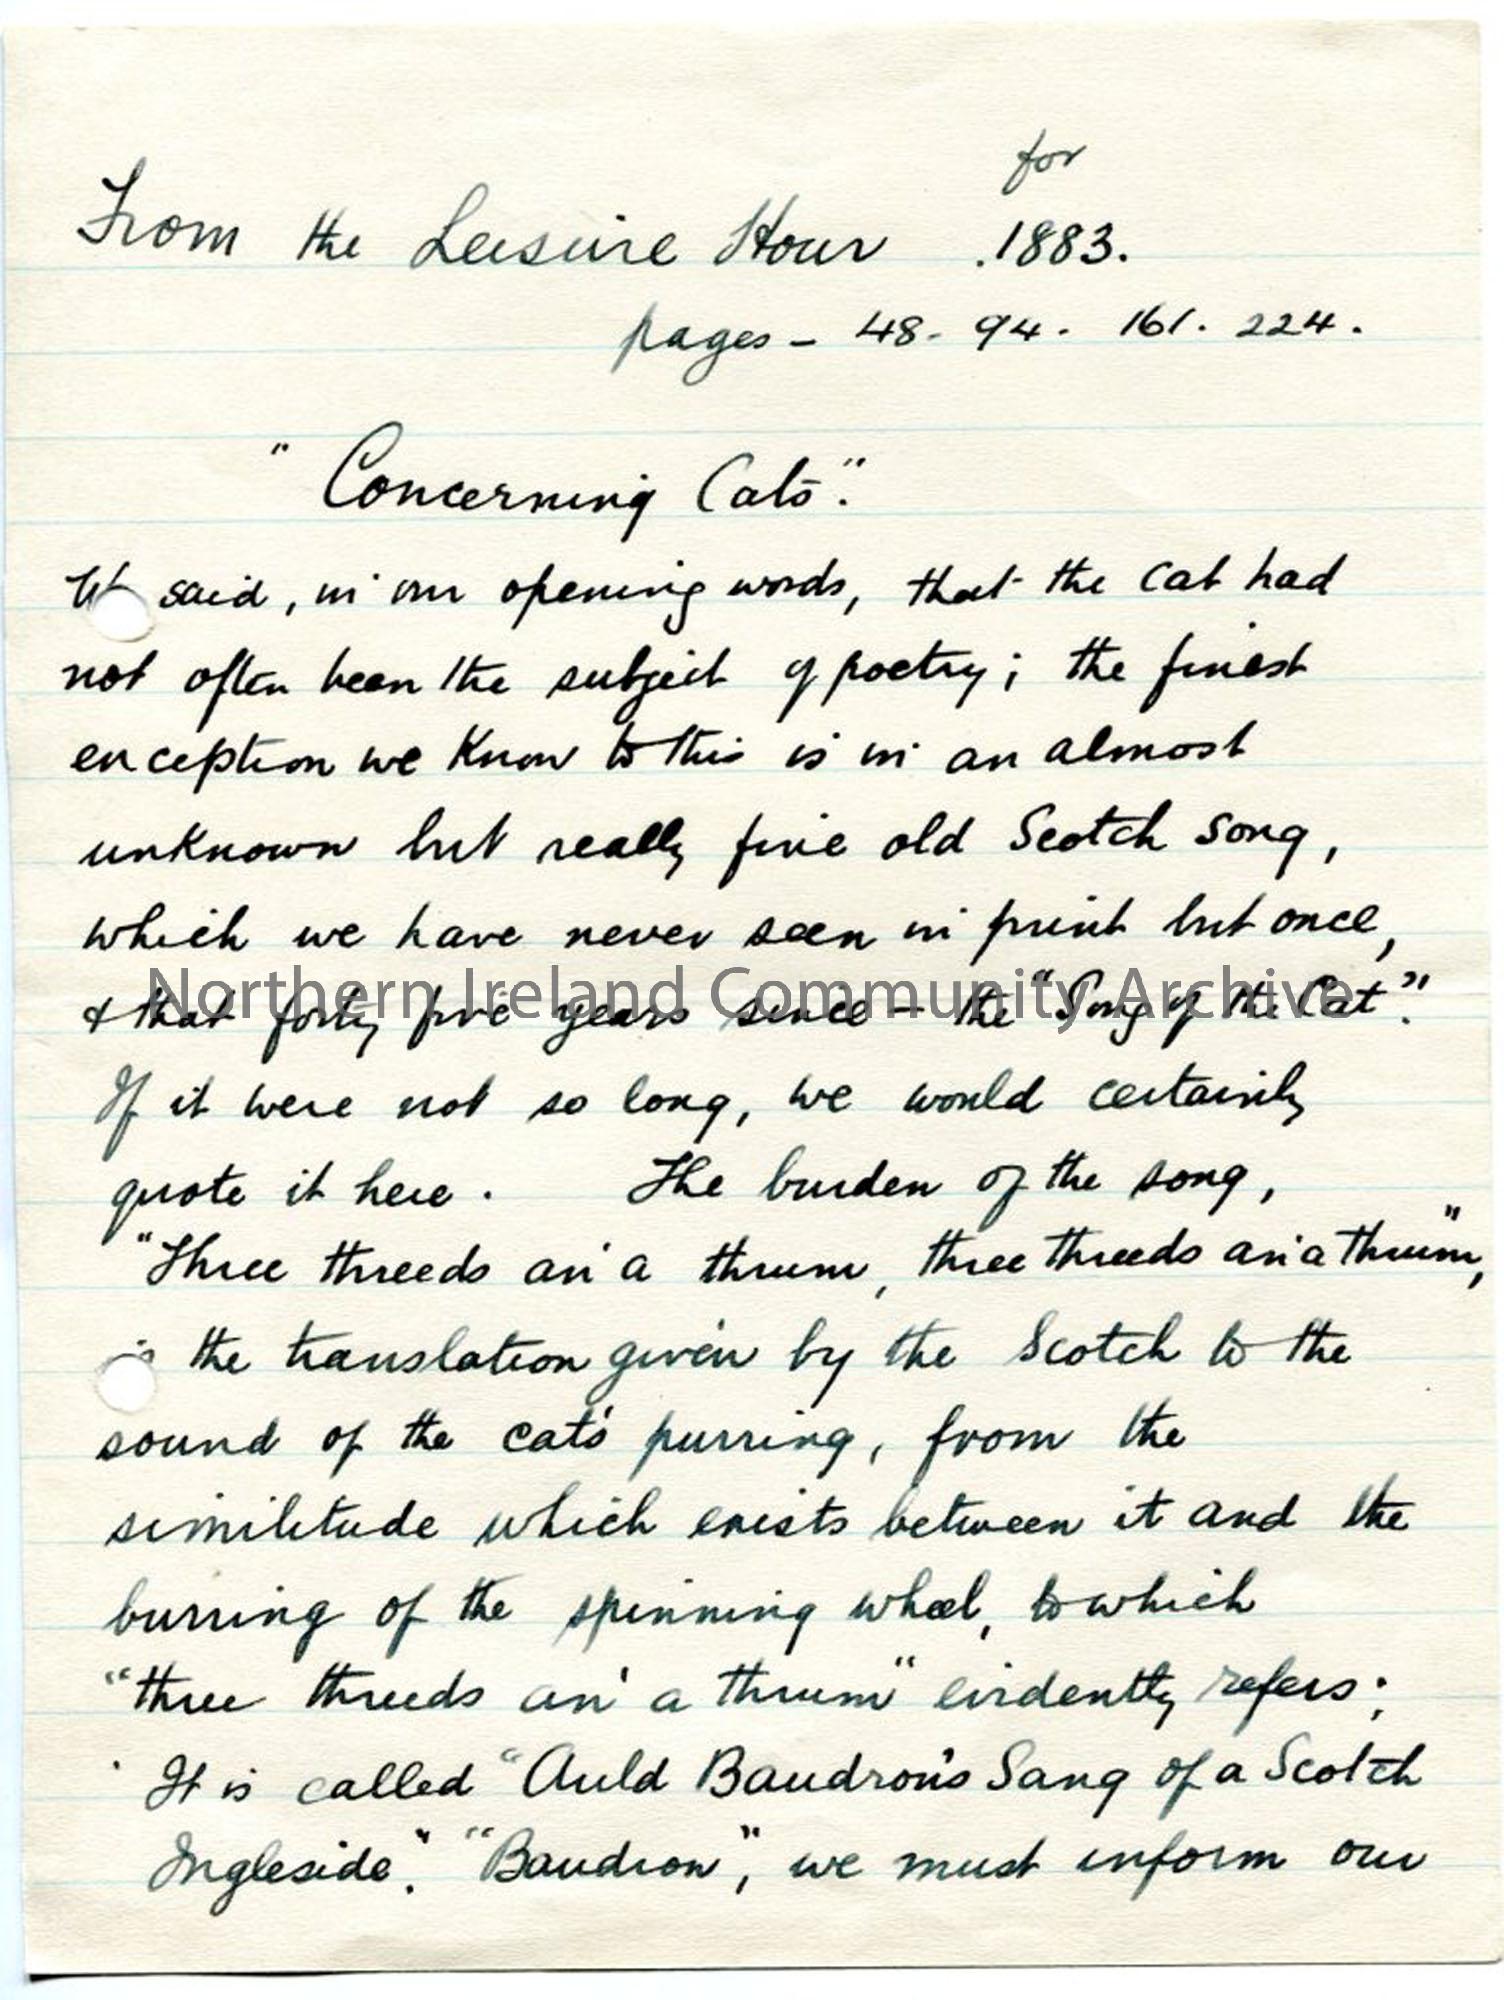 for
From the Leisure Hour .1883.
pages - 48 - 94 . 161 . 224 .
"Concerning Cats".
We said, in our opening words, that the Cat had
not often been the subject of poetry; the finest
exception we know to this is in an almost
unknown but really fine old Scotch song,
which we have never seen in print but once,
& that forty five years since - the "Song of the Cat".
Northern Ireland Community Archive
If it were not so long, we would certainly
quote it here. The burden of the song,
"Three threeds an' a thrum, three threeds an' a thrum",
is the translation given by the Scotch to the
sound of the cat's purring, from the
similitude which exists between it and the
burring of the spinning wheel, to which
"three threeds an' a thrum" evidently refers;
It is called "Auld Baudron's Sang of a Scotch
Ingleside". "Baudron", we must inform our